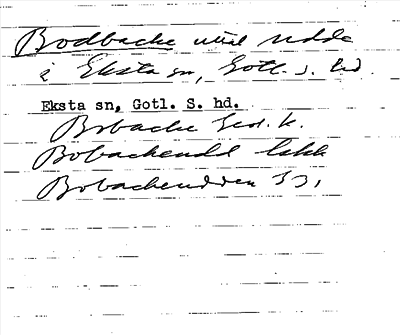 Bodbacke udde
i Eksta sn, Gotl. S. hd.
Eksta sn, Gotl. S. hd.
Bobacke Geol. k.
Bobackeudd
Bobackeudden